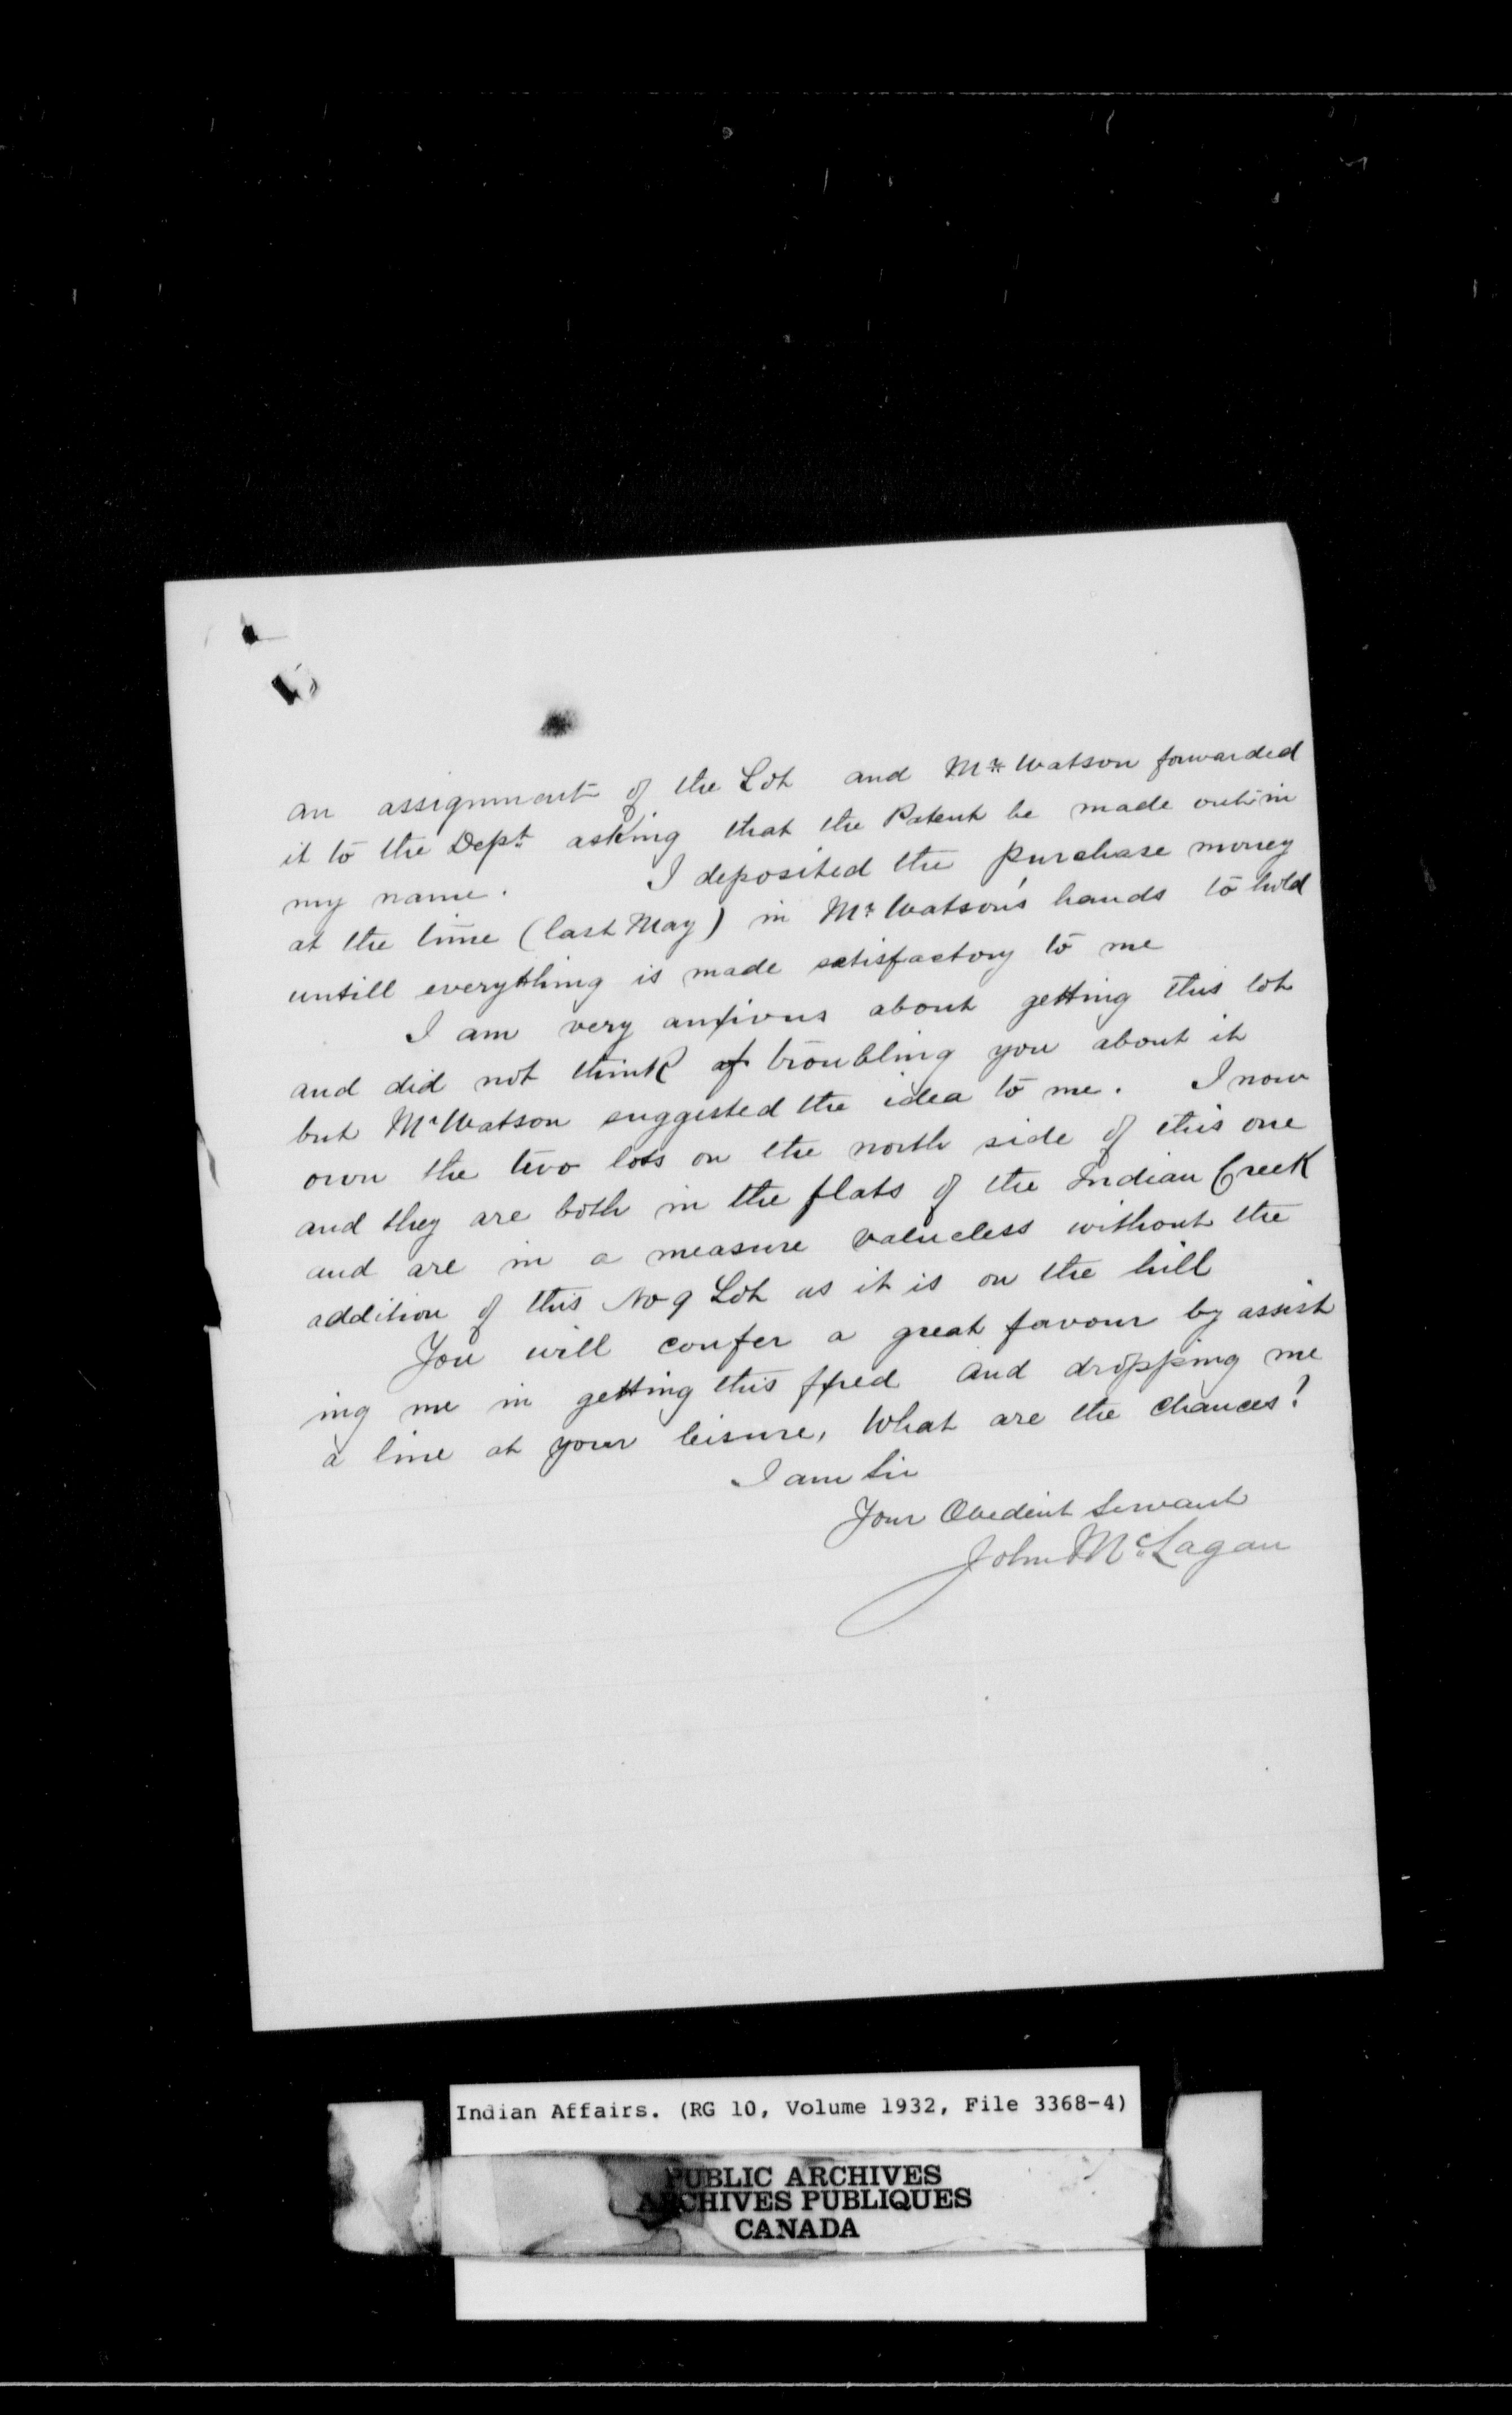 an assignment of the Lot and Mr. Watson forwarded
it to the Dept. asking that the Patent be made out in
my name. I deposited the purchase money
at the time (last May) in Mr. Watson's hands to hold
untill everything is made satisfactory to me
I am very anxious about getting this lot
and did not think of troubling you about it
but Mr Watson suggested the idea to me. I now
own the two lots on the north side of this one
and they are both in the flats of the Indian Creek
and are in a measure valueless without the
addition of this No 9 Lot as it is on the hill
You will confer a great favour by assist
ing me in getting this fixed and dropping me
a line at your leisure, What are the chances?
I am Sir
Your Obedient Servant
John McLagan
Indian Affairs. (RG 10, Volume 1932, File 3368-4)
PUBLIC ARCHIVES
ARCHIVES PUBLIQUES
CANADA